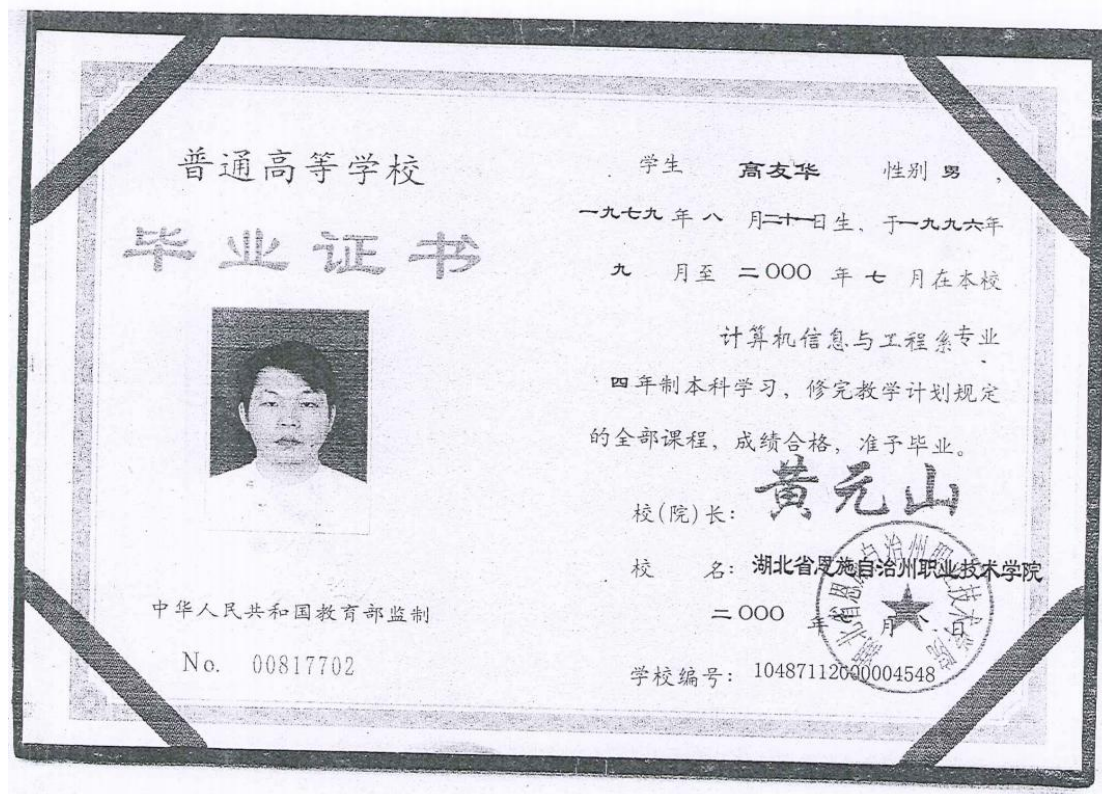 普通高等学校
毕业证书
中华人民共和国教育部监制
No. 00817702
学生 高友华 性别 男，
一九七九 年 八 月二十一日生，于一九九六年
九 月至 二〇〇〇 年 七 月在本校
计算机信息与工程系专业
四年制本科学习，修完教学计划规定
的全部课程，成绩合格，准予毕业。
校(院)长： 黄元山
校 名：湖北省恩施自治州职业技术学院
二〇〇〇 年 月 日
学校编号：10487112000004548
湖北省恩施自治州职业技术学院